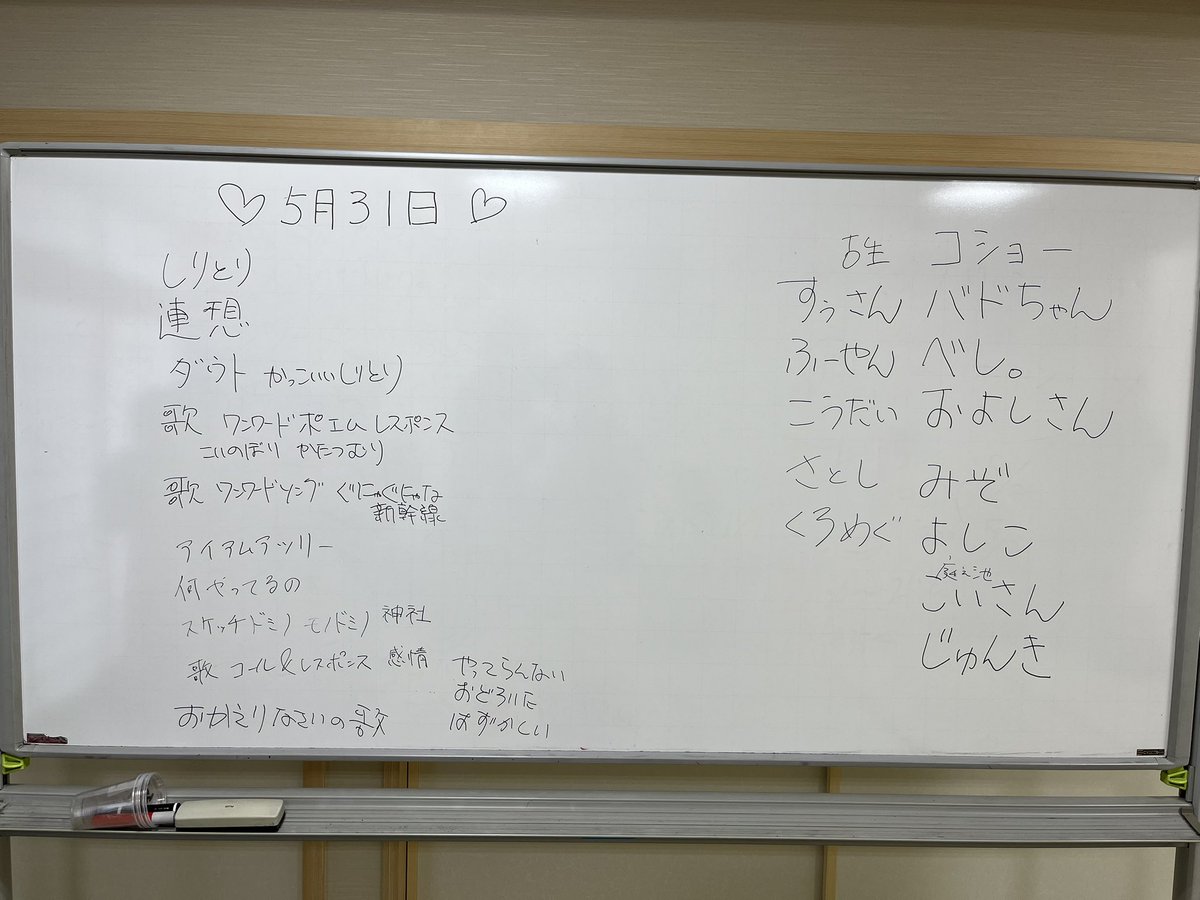 ♡ 5月31日 ♡
しりとり
連想
ダウト かっこいいしりとり
歌 ワンワードポエム レスポンス
こいのぼり かたつむり
歌 ワンワードソング ぐにゃぐにゃな
新幹線
アイアムアツリー
何やってるの
スケッチドミノ モノドミノ 神社
歌 コール&レスポンス 感情 やってらんない
おどろいた
はずかしい
おかえりなさいの歌
コショー
すぅさん バドちゃん
ふーやん べし。
こうだい およしさん
さとし みぞ
くろめぐ よしこ
こいさん
じゅんき